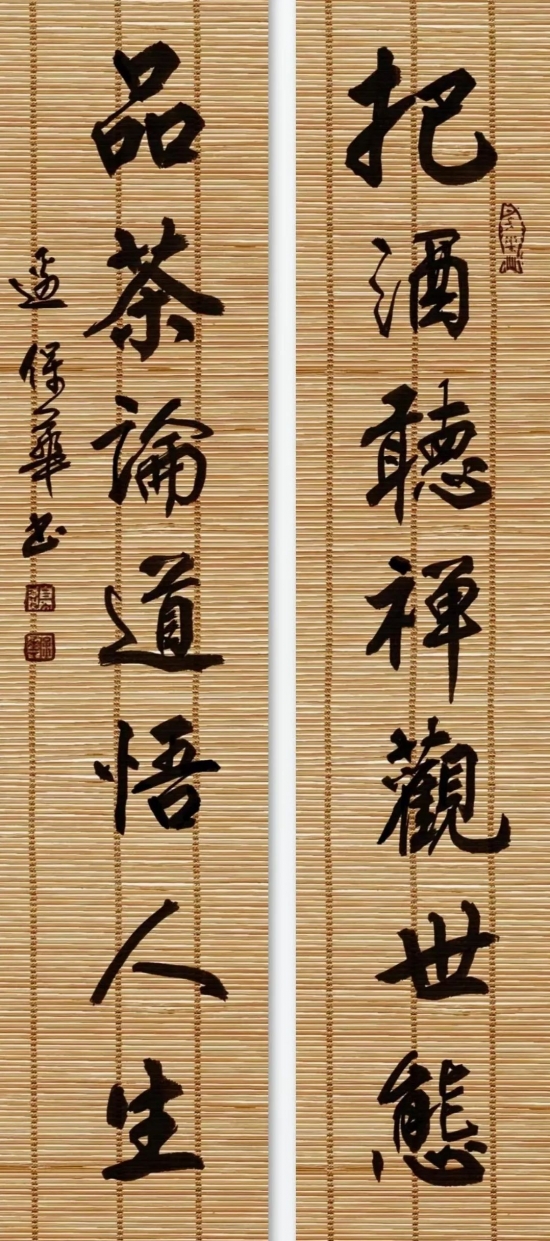 把酒聽禪觀世態
品茶論道悟人生
保華书